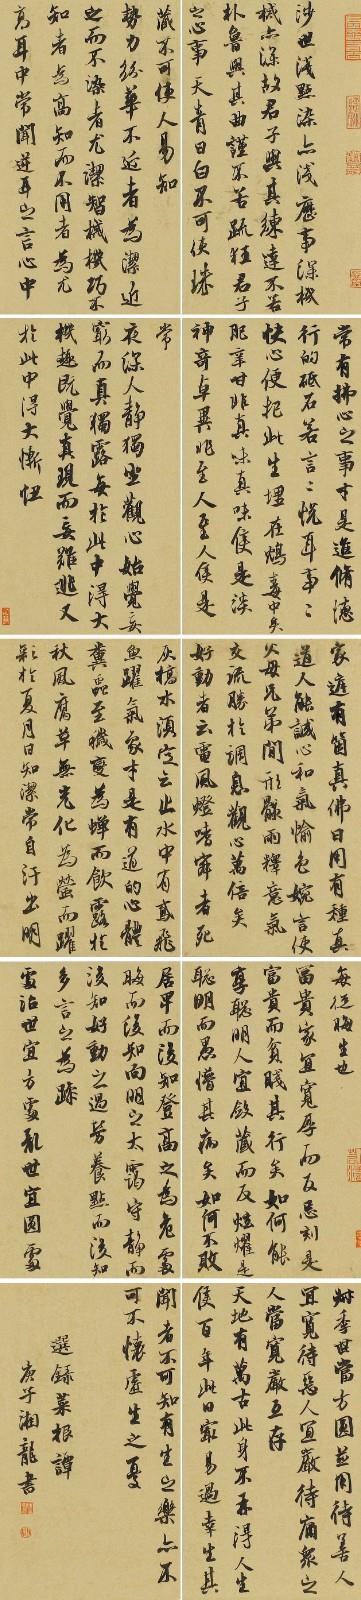 涉世浅點染亦浅歷事深機
械亦深故君子與其練達不若
朴魯與其曲謹不若疏狂君子
之心事天青日白不可使珠
藏不可使人易知
勢力紛華不近者為潔近
之而不染者尤潔智械機巧不
知者為高知而不用者為尤
高耳中常聞逆耳之言心中
常有拂心之事才是進脩德
行的砥石若言々悅耳事々
快心便把此生埋在鴆毒中矣
肥辛甘非真味真味僅是淡
神奇卓異非至人至人僅是
常
夜深人靜獨坐觀心始覺妄
窮而真獨露每於此中得大
機趣既覺真現而妄難逃又
於此中得大慚忸
家庭有箇真佛日用有種真
道人能誠心和氣愉色婉言使
父母兄弟間形骸兩釋意氣
交流勝於調息觀心萬倍矣
好動者云電風燈嗜寂者死
灰槁木須定云止水中有鳶飛
魚躍氣象才是有道的心體
糞蟲至穢變為蟬而飲露於
秋風腐草無光化為螢而躍
彩於夏月因知潔常自汙出明
每從晦生也
富貴家宜寬厚而反忌刻是
富貴而貧賤其行矣如何能
享聰明人宜斂藏而反炫耀是
聰明而愚懵其病矣如何不敗
居卑而後知登高之為危處
晦而後知向明之太露守靜而
後知好動之過勞養默而後知
多言之為躁
處治世宜方處亂世宜圓處
叔季世當方圓並用待善人
宜寬待惡人宜嚴待庸眾之
人當寬嚴互存
天地有萬古此身不再得人生
僅百年此日最易過幸生其
間者不可知有生之樂亦不
可不懷虛生之憂
選錄菜根譚
庚子湘龍書